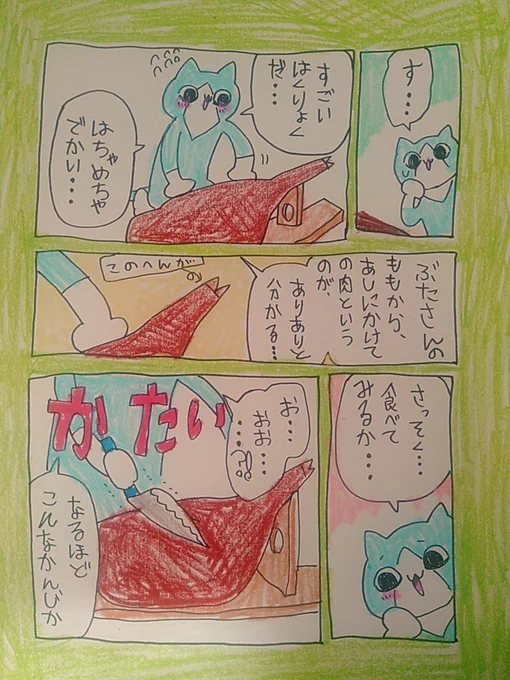 す・・・
すごい
はくりょく
だ・・・
はちゃめちゃ
でかい・・・
ぶたさんの
ももから、
あしにかけて
の肉という
のが、
ありありと
分かる・・・
このへんがの
さっそく・・・
食べて
みるか・・・
お・・・
おお
・・・・!?
かたい
なるほど
こんなかんじか